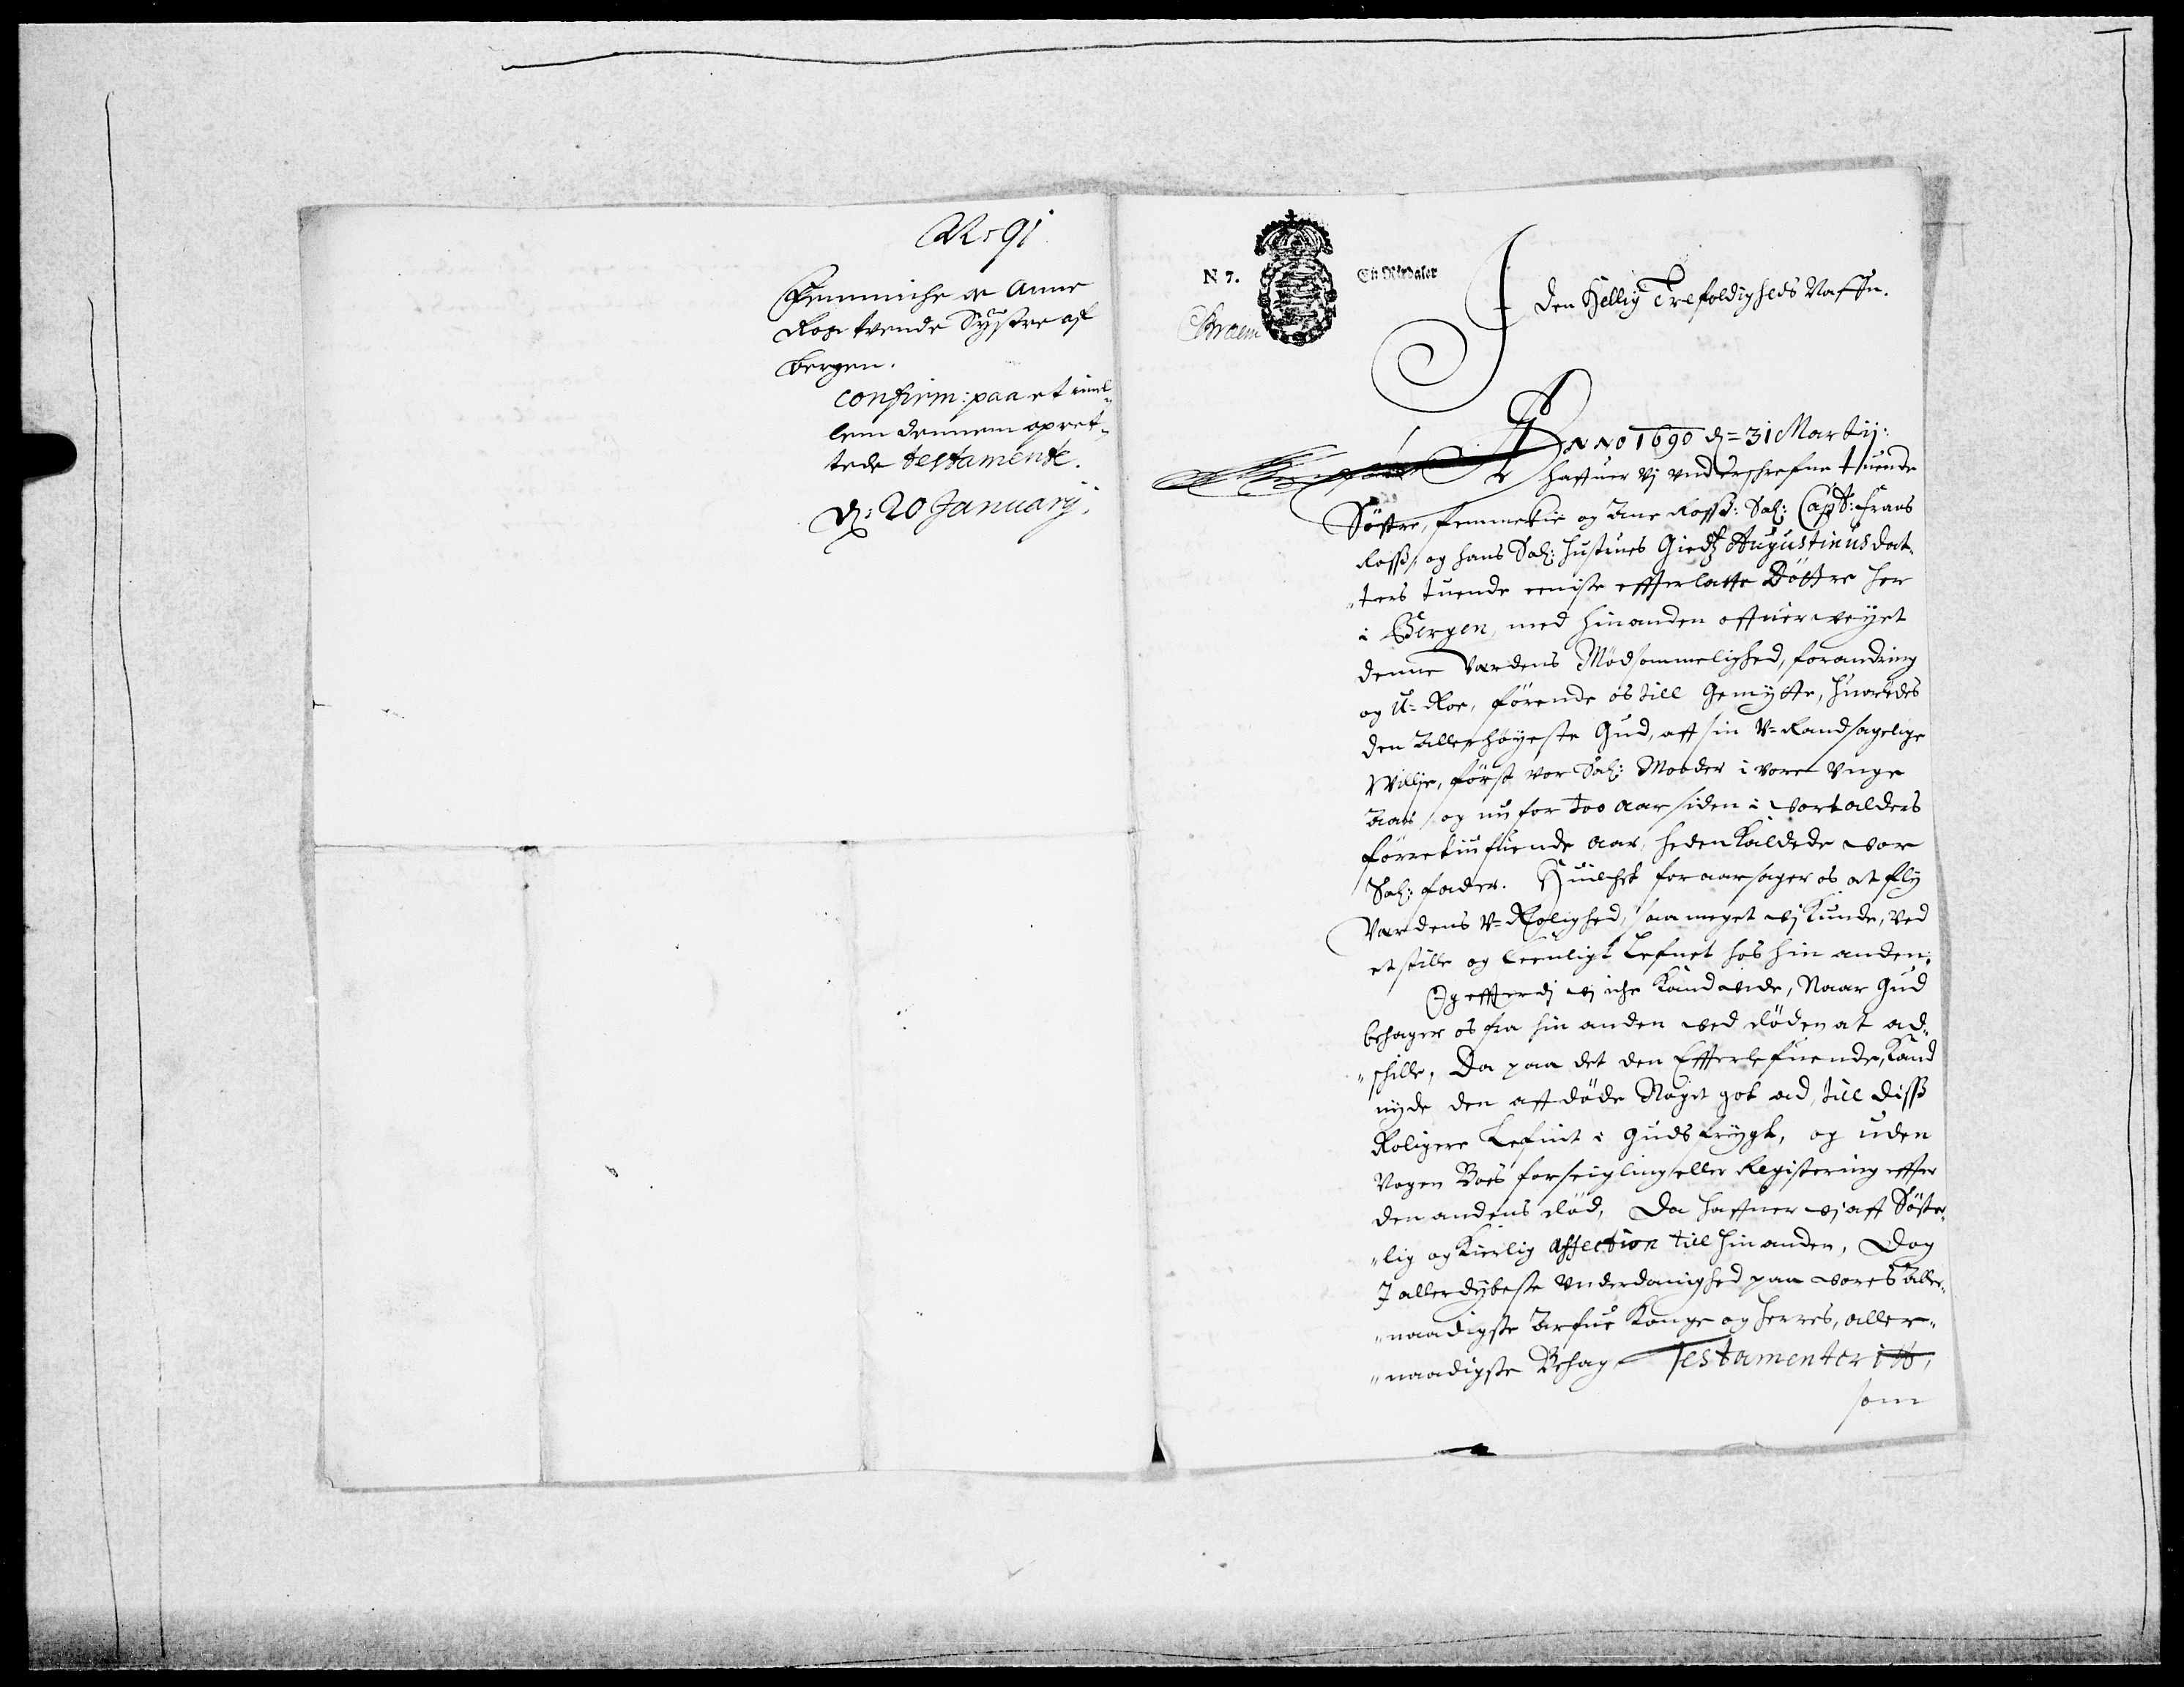 1691
Femmiche og Anne
Ross tvende Systre af
Bergen.
Confirm: paa et imel¬
lem dennem opret¬
tede testamente.
D: 20 January.
N 7.
En Rixdaler
Braem
I
den Hellig Trefoldigheds Naffn.
Anno 1690 d= 31 Martij:
Haffuer vj underschrefne tuende
Söstre, Femmetie og Ane Rossß: Sal: Capt: Frans
Rossß, og hans Sal: Hustrues Giedtz Augustinusdat¬
"ters tuende eeniste effterlatte Döttre her
i Bergen, med hinanden offuerveyet
denne Verdens Mödsommelighed, forandring
og U=Roe, förende os till Gemytte, huorledes
den Allerhöyeste Gud, aff sin V=Randsagelige
Willje, först vor Sal: Mooder i vore Unge
Aar, og nu for too aar siden i vort alders
förretiufuende aar, hedenkaldede vor
Sal: Fader. Huilchet foraarsager os at fly
Verdens V=Rolighed, saa meget vj kunde, ved
et stille og eenligt Lefnet hos hin anden.
Og effterdj vj iche kand vide, Naar Gud
behager os fra hin anden ved döden at ad¬
"schille, Da paa det den Effterlefuende, kand
nyde den aff döde Noget got ad, till diss
Roligere Lefnit i Guds frygt, og uden
Nogen Boes forseigling eller Registering effter
den andens död, Da haffuer vj aff Söster¬
"lig og Kierlig affection till hin anden, Dog
I allerdybeste Underdanighed paa vores Aller¬
"naadigste Arfue Konge og Herres, aller¬
"naadigste Behag Testamenteritt,
som